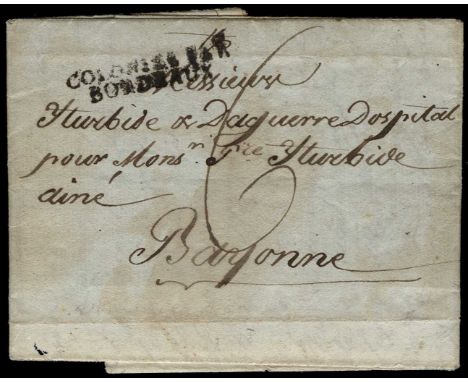 COLONIES PAR
BORDEAUX
Messieurs
Yturbide & Daguerre Dospital
pour Monsr. Pre Yturbide
ainé
Bayonne
6